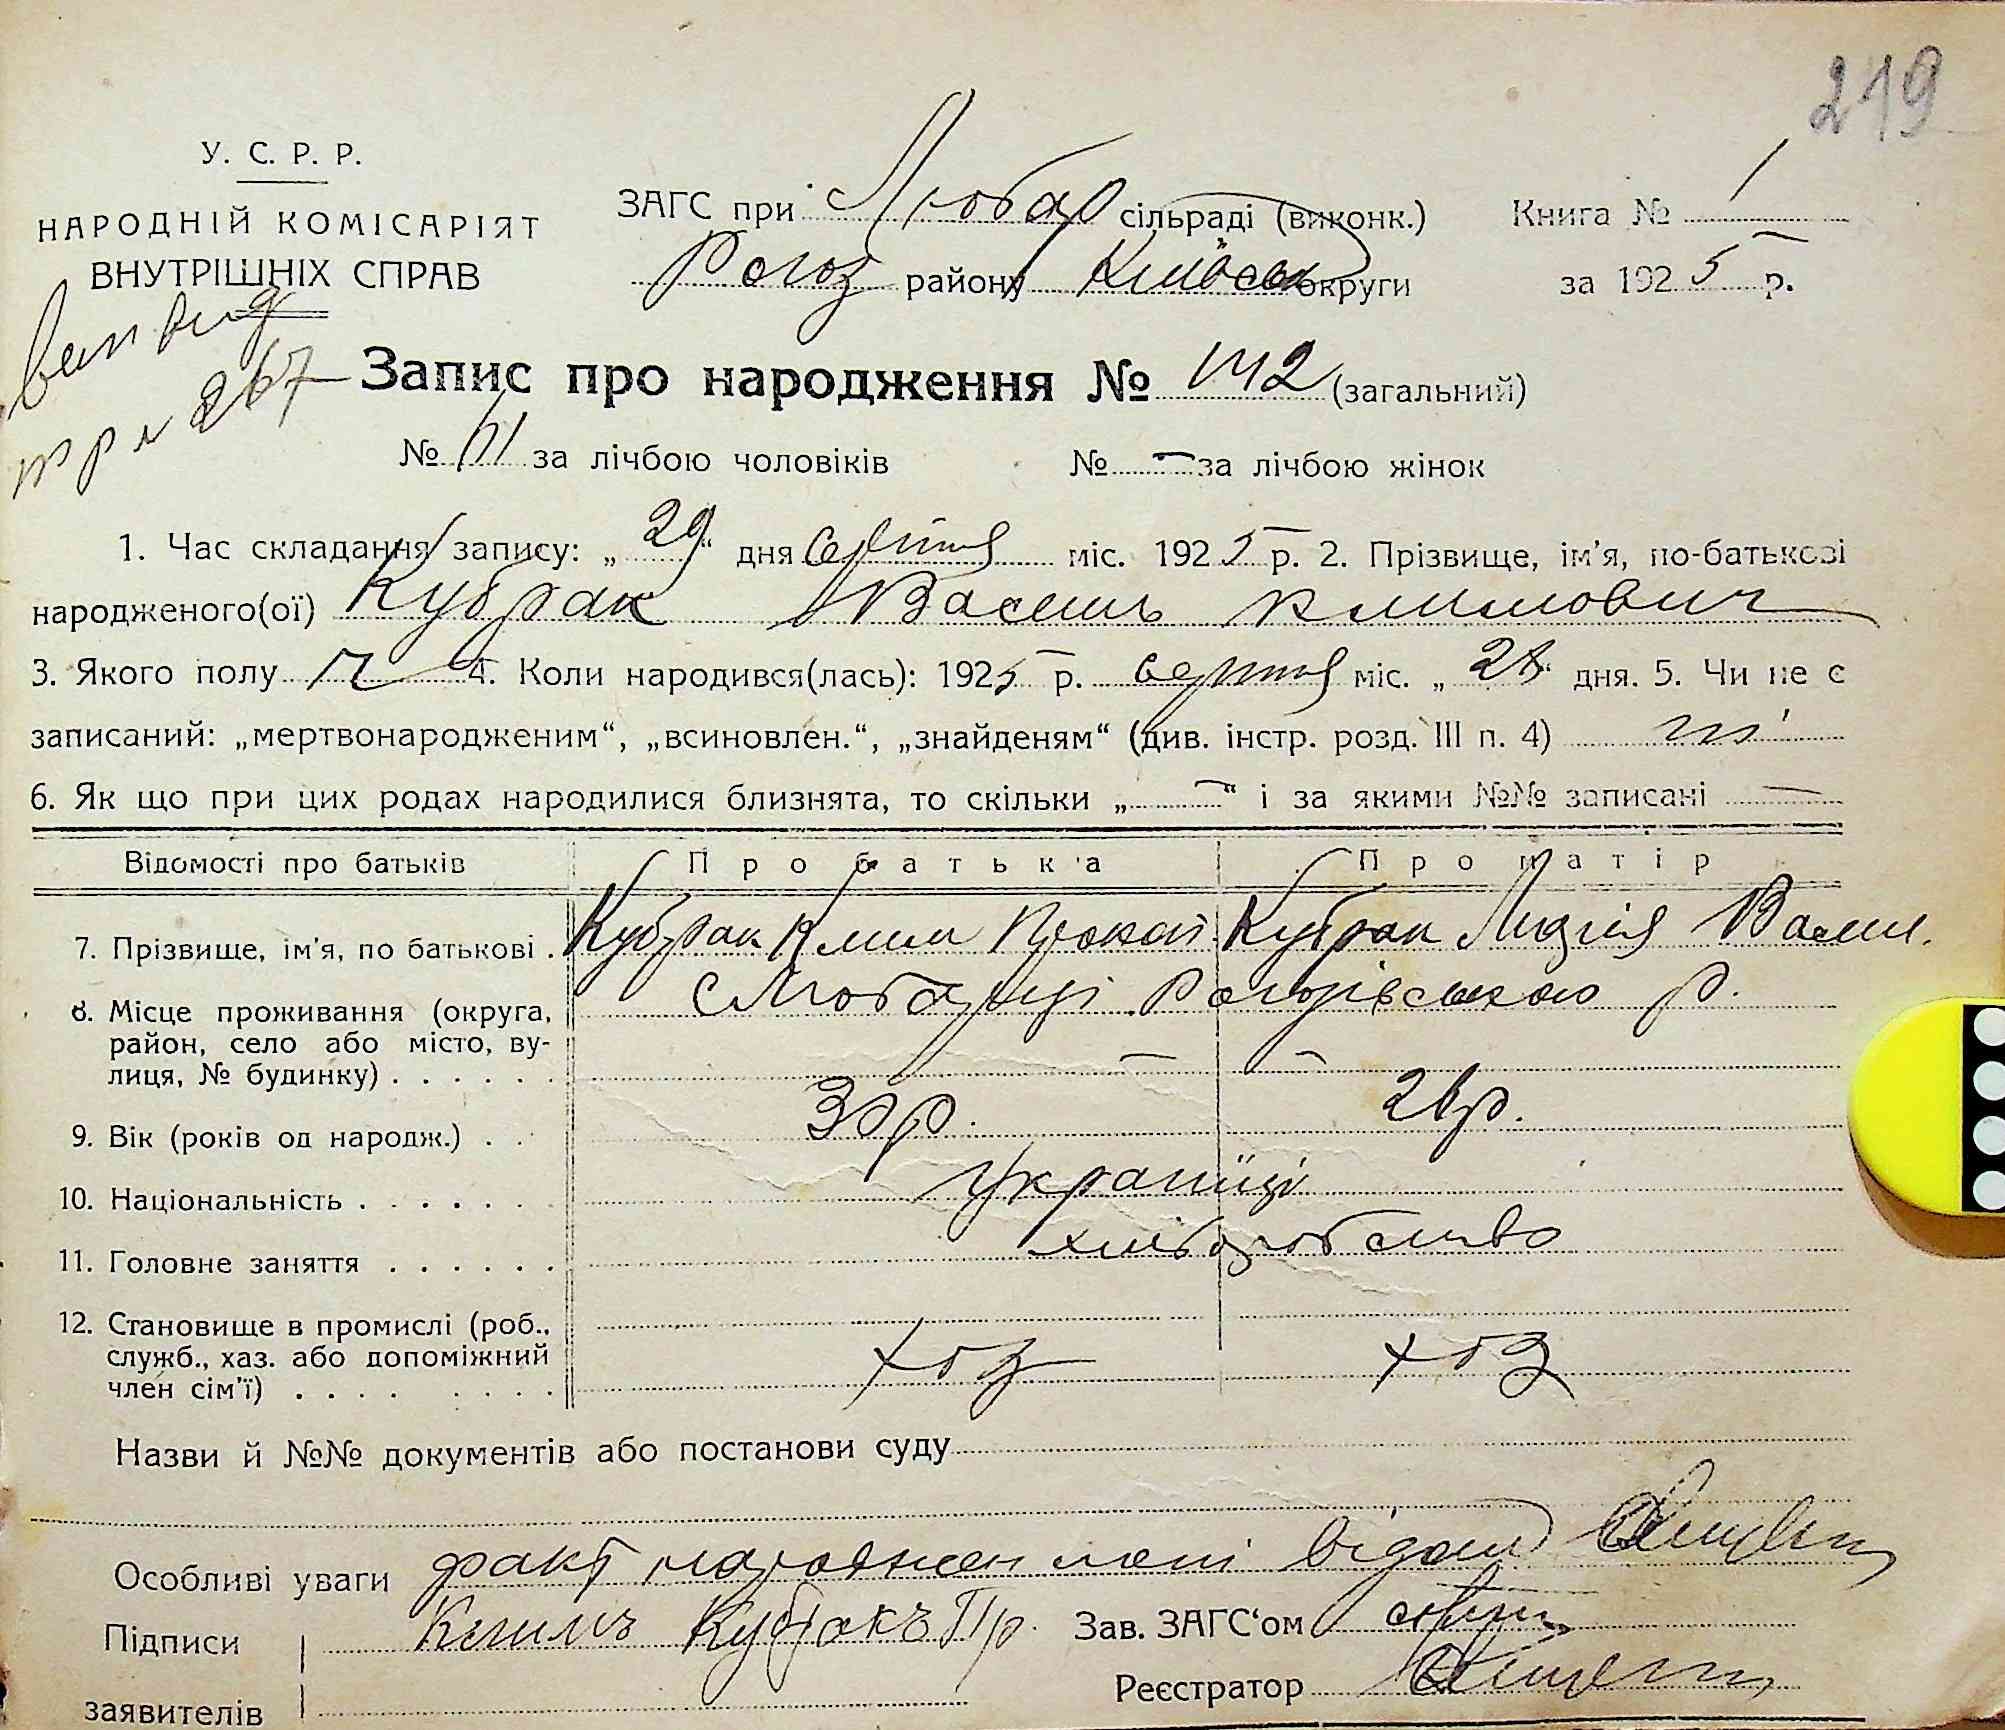 219
У. С. Р. Р.
НАРОДНІЙ КОМІСАРІЯТ
ВНУТРІШНІХ СПРАВ
ЗАГС при Любар сільраді (виконк.)
Рогоз району Київськ округи
Книга № 1
за 1925 р.
267
Запис про народження № 142 (загальний)
№ за лічбою чоловіків № — за лічбою жінок
1. Час складання запису: „29“ дня серпня міс. 1925 р. 2. Прізвище, ім'я, по-батькові
народженого(ої) Кубрак Василь Климович
3. Якого полу ч 4. Коли народився(лась): 1925 р. серпня міс. „28“ дня. 5. Чи не є
записаний: „мертвонародженим“, „всиновлен.“, „знайденям“ (див. інстр. розд. III п. 4) ні
6. Як що при цих родах народилися близнята, то скільки „—“ і за якими №№ записані —
Відомості про батьків Про батька Про матір
7. Прізвище, ім'я, по батькові . Кубрак Клим Прокоп. Кубрак Лидія Васил.
8. Місце проживання (округа, с Любарці Рогозівського р.
район, село або місто, ву-
лиця, № будинку) . . . . . . — —
9. Вік (років од народж.) . . 30р. 26р.
10. Національність . . . . . . . Українці
11. Головне заняття . . . . . . хліборобство
12. Становище в промислі (роб.,
служб., хаз. або допоміжний хоз хоз
член сім'ї) . . . . . . . . .
Назви й №№ документів або постанови суду
Особливі уваги факт народжен мені відом
Підписи Климъ Кубракъ Пр. Зав. ЗАГС'ом
заявителів Реєстратор